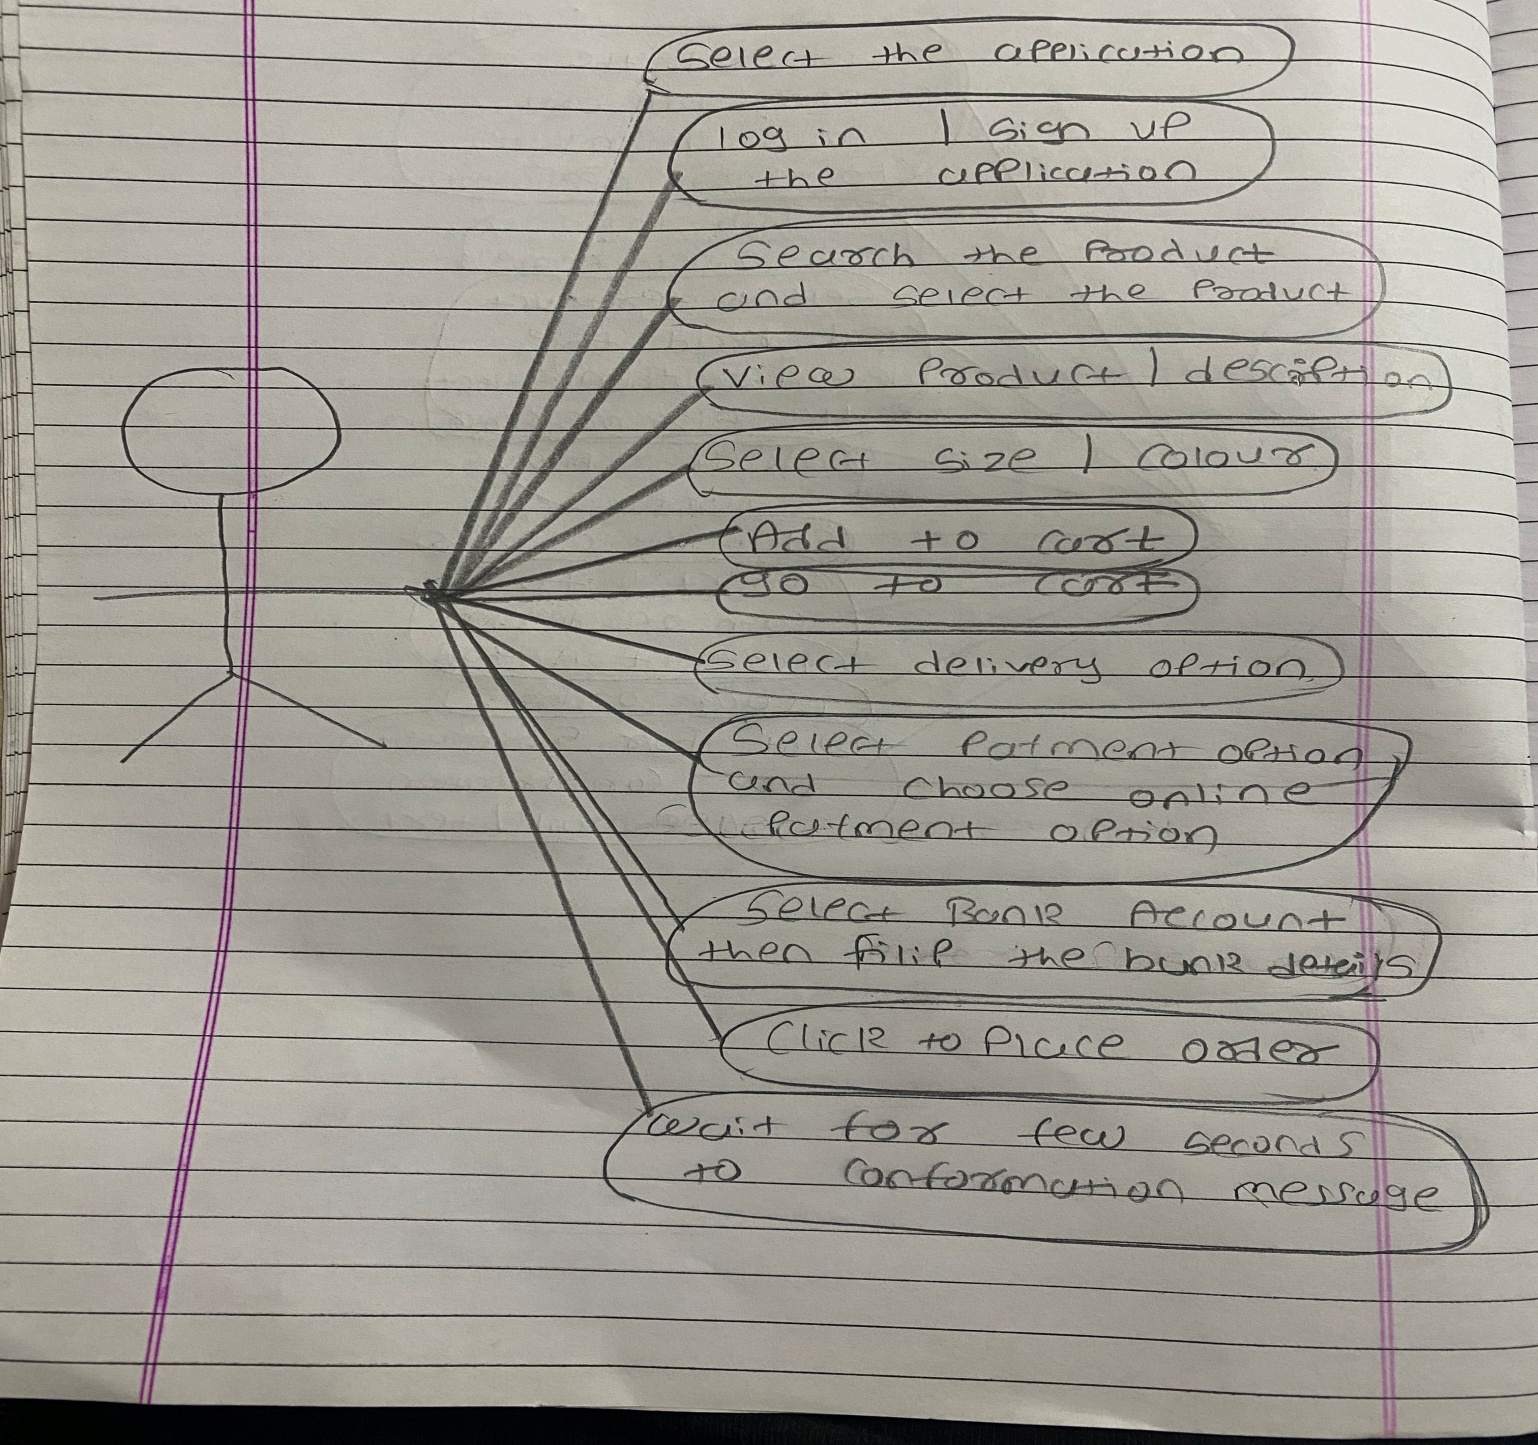 Select the application
log in / sign up
the application
Search the Product
and select the Product
View Product / description
Select size / colour
Add to cart
go to cart
Select delivery option
Select Patment option
and choose online
Patment option
Select Bank Account
then filip the bank details
Click to Place order
wait for few seconds
to conformation message